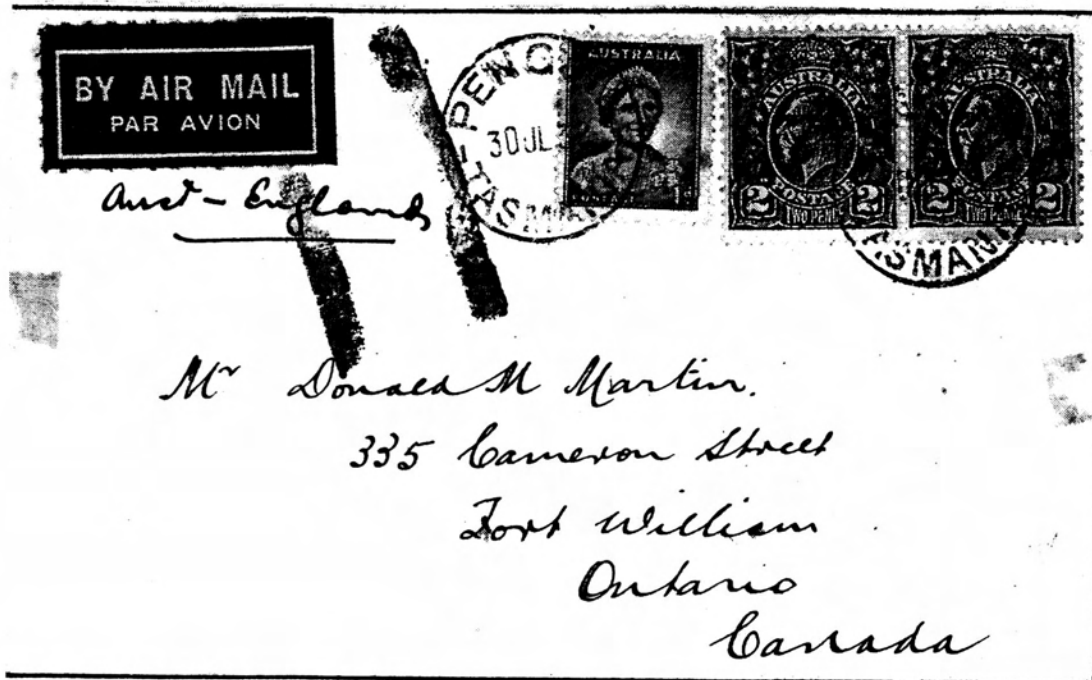 BY AIR MAIL
PAR AVION
Aust - England
PENG
30 JL
TASMA
AUSTRALIA
AUSTRALIA
POSTAGE
2 TWO PENCE 2
AUSTRALIA
POSTAGE
2 TWO PENCE 2
ASMAN
Mr Donald M Martin.
335 Cameron Street
Fort William
Ontario
Canada